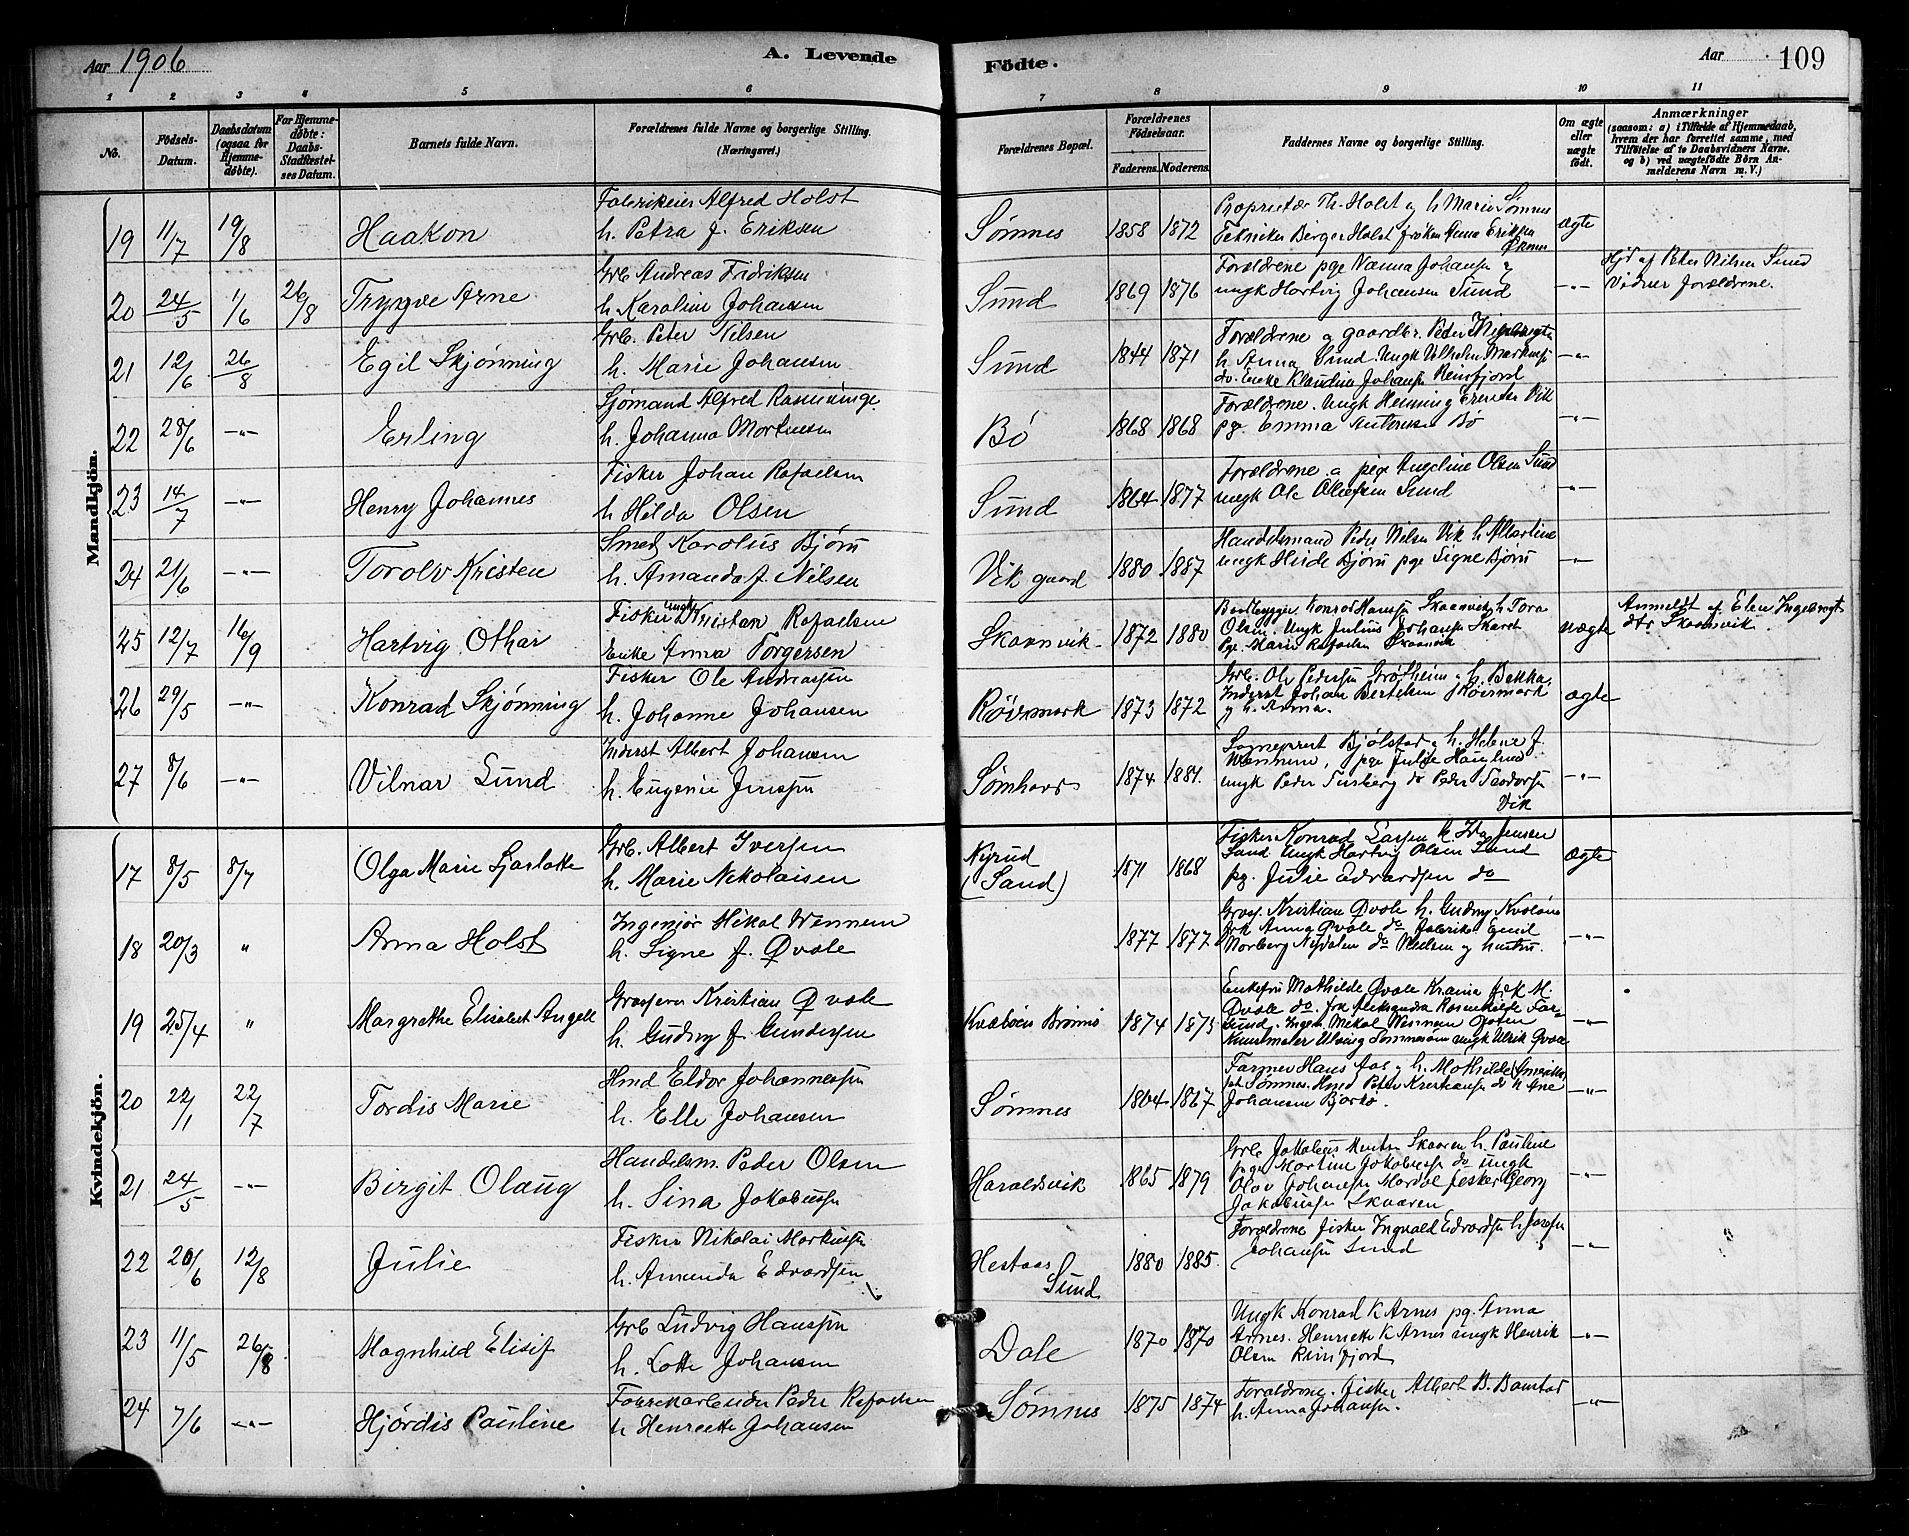 Aar 1906
A. Levende
Födte.
Aar
109
1 2 3 4 5 6
7 8 9 10 11
No.
Födsels-
Datum.
Daabsdatum
(ogsaa for
Hjemme-
döbte).
For Hjemme-
döbte:
Daabs-
Stadfæstel-
ses Datum.
Barnets fulde Navn.
Forældrenes fulde Navne og borgerlige Stilling.
(Næringsvei.)
Forældrenes Bopæl.
Forældrenes
Födselsaar.
Faderens. Moderens.
Faddernes Navne og borgerlige Stilling.
Om ægte
eller
uægte
födt.
Anmærkninger
(saasom: a) i Tilfælde af Hjemmedaab,
hvem der har forrettet samme, med
Tilföielse af to Daabsvidners Navne.
og b) ved uægtefödte Börn An-
melderens Navn m. V.)
Mandkjön.
19 11/7 19/8 Haakon
Fabrikeier Alfred Holst
h. Petra f. Eriksen
Sømnes 1858 1872
Proprietær Th. Holst og h Marie Sømnes
Tekniker Birger Holst frøken Anna Eriksen
ægte
20 24/5 1/6 26/8 Trygve Arne
Grb Andreas Fidriksen
h. Karoline Johansen
Sund 1869 1876
Forældrene pge Nanna Johansen og
ungk Hartvig Johansen Sund
-"-
Hjd af Peter Nilsen Sund
Vidner forældrene.
21 12/6 26/8 Egil Skjønning
Grb. Peter Nilsen
h. Marie Johansen
Sund 1844 1871
Forældrene og gaardbr. Peder
h. Anna Sund. Ungk Vilhelm Markusen
do. Enke Klaudine Johansen Reinsfjord
-"-
22 28/6 -"- Erling
Sjømand Alfred
h. Johanna Mortensen
Bø 1868 1868
Forældrene. Ungk Henning Vik
pge. Emma Bø
-"-
23 14/7 -"- Henry Johannes
Fisker Johan Rafaelsen
h Hilda Olsen
Sund 1864 1877
Forældrene og pige Angeline Olsen Sund
ungk Ole Olufsen Sund
-"-
24 21/6 -"- Torolv Kristen
Smed Karolus Bjørn
h. Amanda f. Nilsen
Vik gaard 1880 1887
Handelsmand Peder Nilsen Vik h Albertine
ungk Bjørn pge Signe Bjørn
-"-
25 12/7 16/9 Hartvig Othar
Fisker ungk Kristian Rafaelsen
Enke Anna Torgersen
Skaanvik 1872 1880
Baadbygger Konrad Hansen Skaanvik h. Tora
Olsen. Ungk Julius Johansen Skaret
Pge. Marie Rafaelsen Skaanvik
uægte
Anmeldt af Elen Ingebrigt-
dtr Skaanvik.
26 29/5 -"- Konrad Skjønning
Fisker Ole Andreassen
h. Johanne Johansen
Røvsmark 1873 1872
Grb. Ole Pedersen Grøtheim og h. Bekka.
Inderst Johan Bertelsen Røvsmark
og h. Anna.
ægte
27 8/6 -"- Vilnar Sund
Inderst Albert Johansen
h. Eugenie Jensen
Sømhovd 1874 1881.
Sogneprest Bjølstad og h. Helene f.
Wennem, pge Julie Haugland
ungk Peder Tusberg do Peder Teodorsen
Vik
-"-
Kvindekjön.
17 8/5 8/7 Olga Marie Sjarlotte
Grb. Albert Iversen
h. Marie Nikolaisen
Nyrud
(Sand) 1871 1868
Fisker Konrad Larsen h. Ida Jensen
Sand Ungk Hartvig Olsen Sund
pg. Julie Edvardsen do
Ægte
18 20/3 " Anna Holst
Ingeniør Mikal Wennem
h. Signe f. Qvale
1877 1877
Gross. Kristian Qvale h. Gudny Kvaløen
frk Anna Qvale do Fabrikei Emil
Norberg Nydalen do Nielsen og hustru.
-"-
19 25/4 " Margrethe Elisabet Angell
Grosserer Kristian Qvale
h. Gudny f. Gundersen
Kvaløen Brønnø 1874 1873
Enkefru Mathilde Qvale Krania frk M.
Qvale do. frk Aleksandra Rosenkilde Far-
sund. Ingen. Mikal Wennem
Kunstmaler Ulving Sømnesøen ungk Ulrik Qvale
-"-
20 22/1 22/7 Tordis Marie
Hmd Eldor Johannessen
h. Elle Johansen
Sømnes 1864 1867
Farmer Hans Aas og h. Mathilde (Amerika)
fot Sømnes. Hmd Peter Kristiansen do h Ane
Johansen Bjørkø.
-"-
21 24/5 -"- Birgit Olaug
Handelsm. Peder Olsen
h. Sina Jakobsen
Haraldsvik 1865 1879
Grb Jakobeus Skaaren h. Pauline
pge Martine Jakobsen do ungk
Olav Johansen Mardal fisker Georg
Jakobsen Skaaren.
-"-
22 20/6 12/8 Julie
Fisker Nikolai Markussen
h. Amanda Edvardsen
Hestaas
Sund 1880 1885.
Forældrene fisker Ingvald Edvardsen h. Josefin
Johansen Sund
-"-
23 11/5 26/8 Magnhild Elisif
Grb Ludvig Hanssen
h. Lotte Johansen
Dale 1870 1870
Ungk Konrad K Arnes pg. Anna
Arnes. Henriette K Arnes ungk Henrik
Olsen Reinsfjord
-"-
24 7/6 -"- Hjördis Pauline
Peder Rafaelsen
h Henriette Johansen
Sømnes 1875 1874
Forældrene. fisker Albert B. Baustad
h. Anna Johansen.
-"-